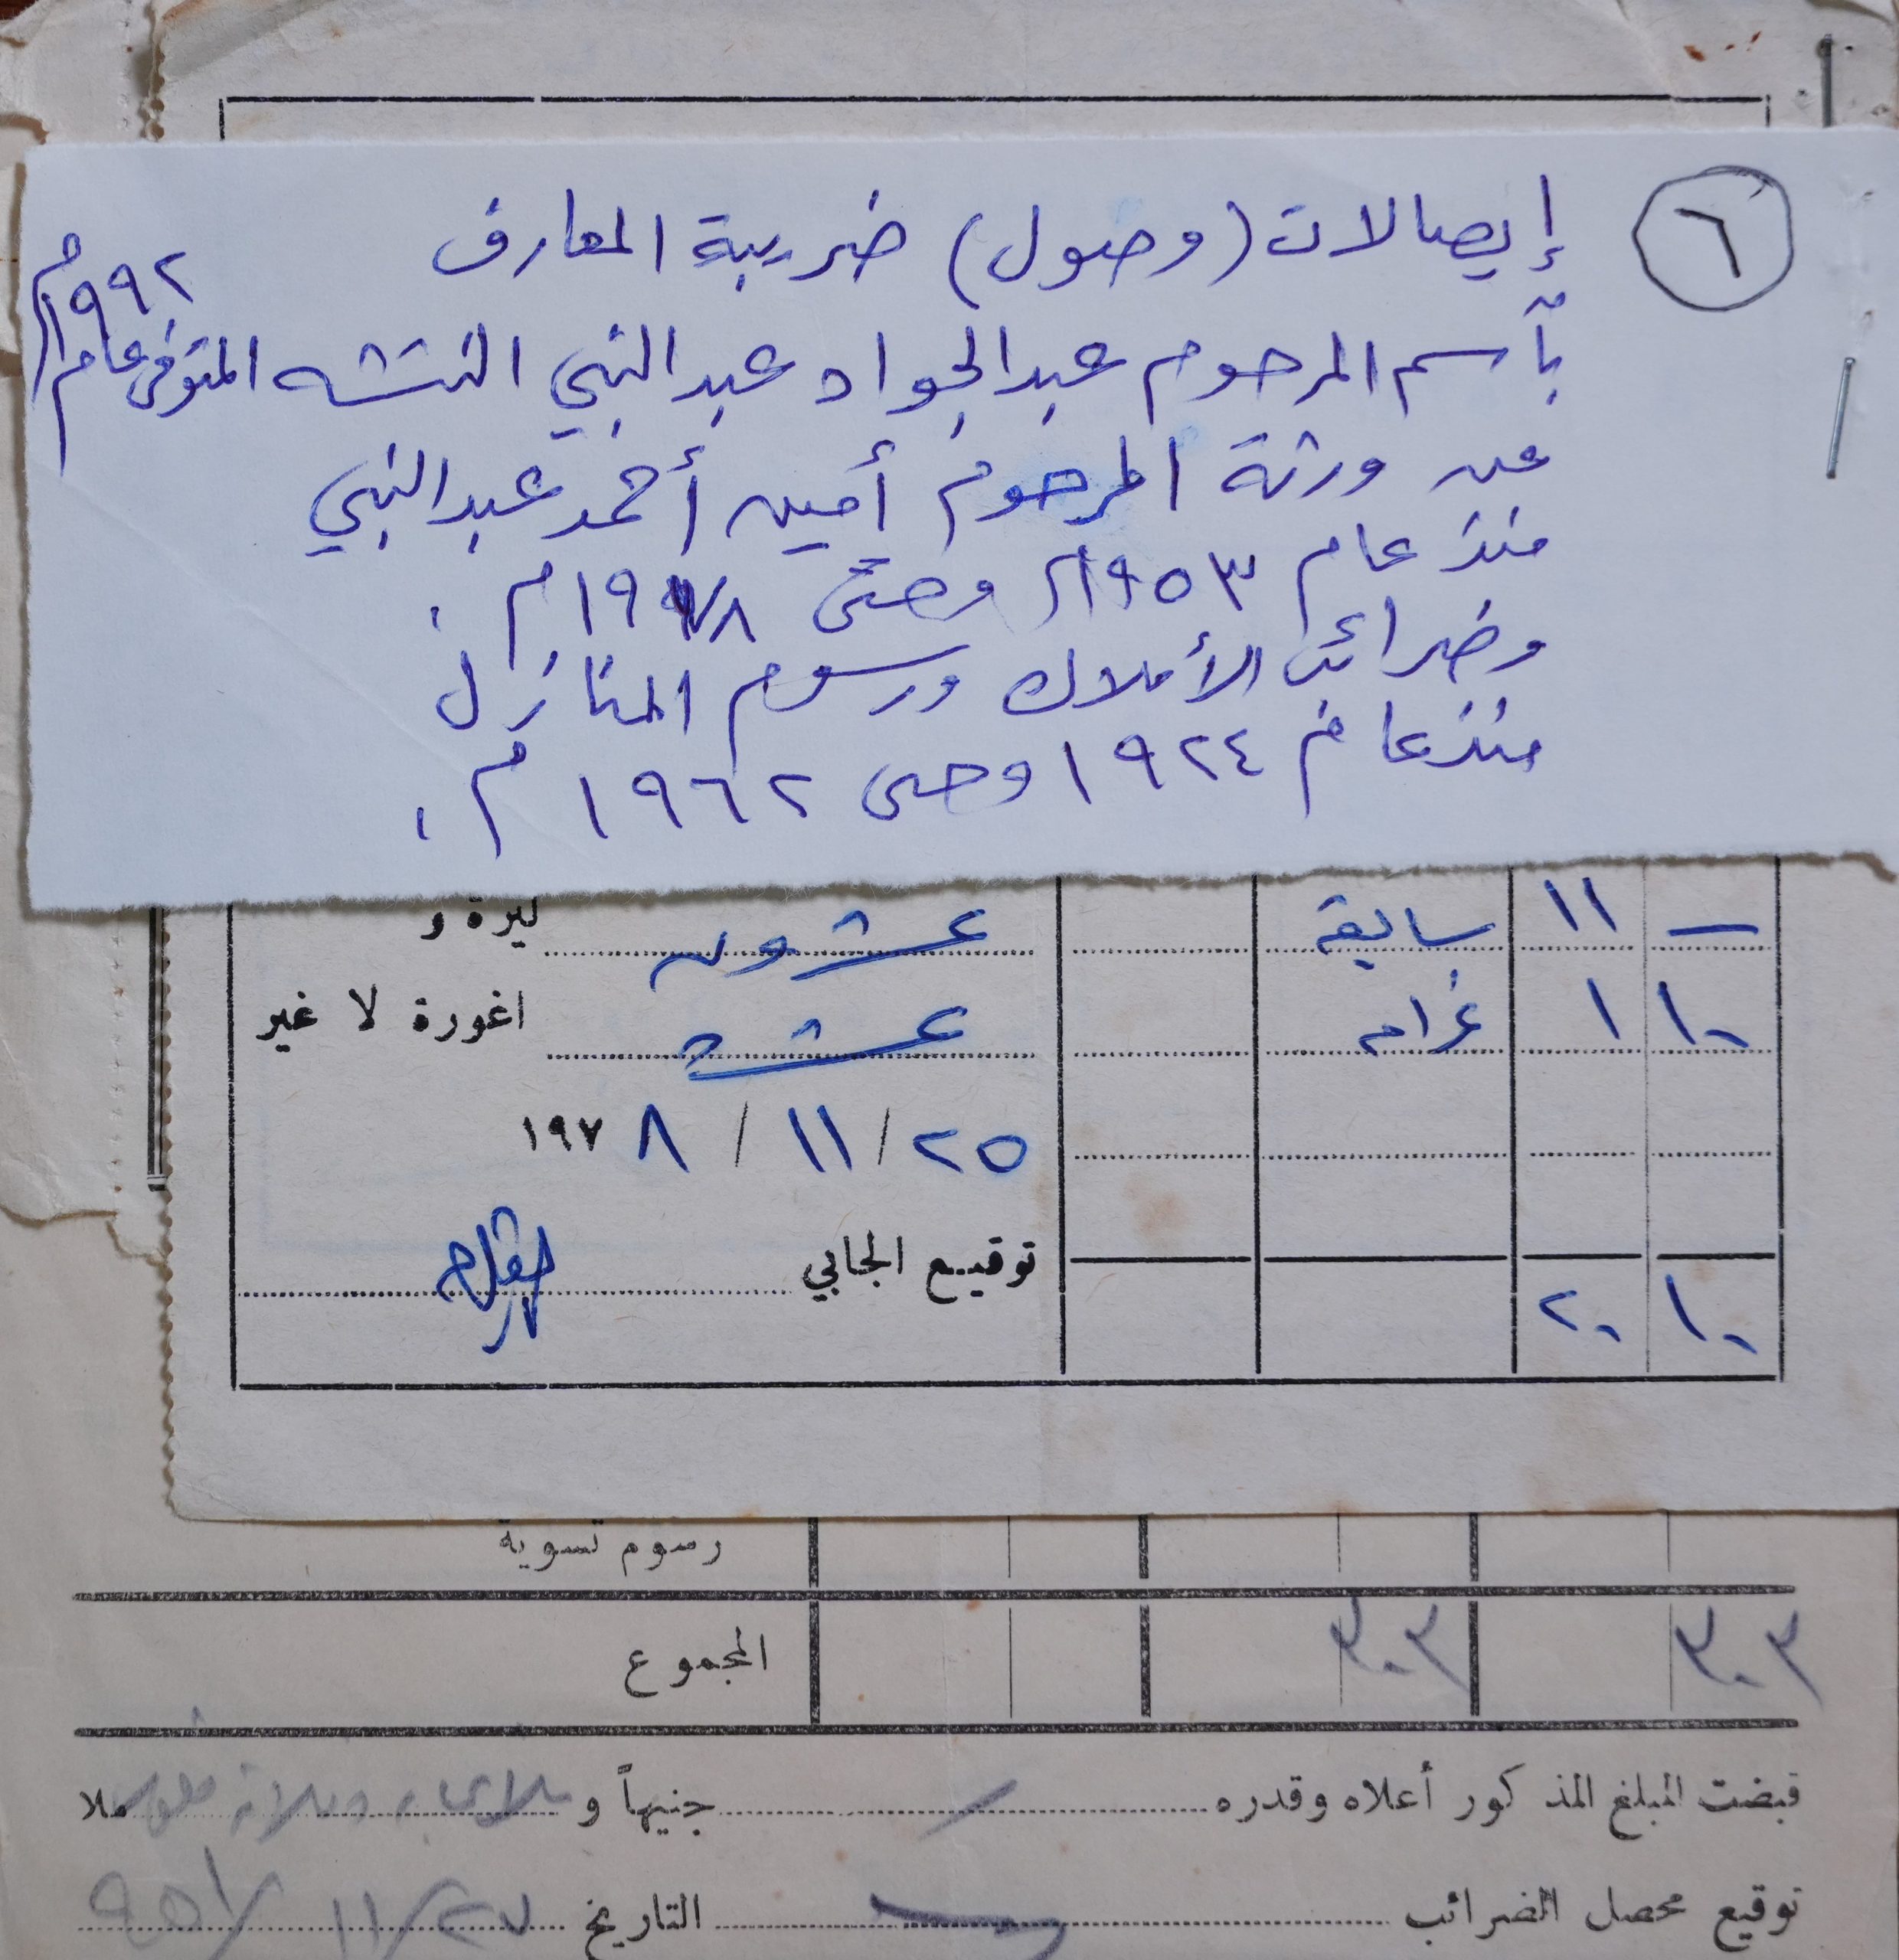 ٦
إيصالات (وصول) ضريبة المعارف
بأسم المرحوم عبدالجواد عبدالنبي النتشه المتوفى عام ١٩٩٢م
عن ورثة المرحوم أمين أحمد عبدالنبي
منذ عام ١٩٥٣م وحتى ١٩٧٨م.
وضرائب الأملاك ورسوم المنازل
منذ عام ١٩٢٤ وحتى ١٩٦٢م.
— ١١ سابقة عشرون ليرة و
١٠ ١ غرامه عشرة اغورة لا غير
٢٥ / ١١ / ١٩٧٨
توقيع الجابي
١٠ ٢٠
رسوم تسوية
٣٠٣ ٣٠٣ المجموع
قبضت المبلغ المذكور أعلاه وقدره جنيهاً و ملا
توقيع محصل الضرائب التاريخ